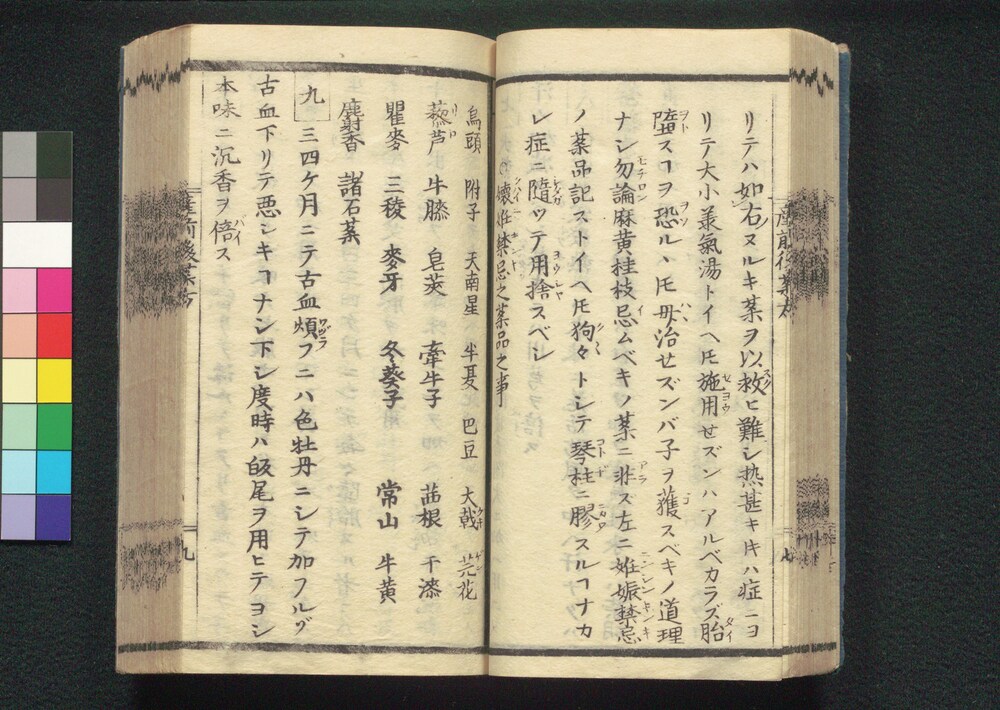 リテハ如石ヌルキ薬ヲ以救ヒ難シ热甚キキハ症ニヨ
リテ大小羕氣湯トイヘ𪜈施用せズンハアルベカラズ胎
墮スヿヲ恐ルハ𪜈毋治せズンバ子ヲ獲スベキノ道理
ナシ勿論麻黄桂枝忌ムベキノ薬ニ非ズ左ニ妊娠禁忌
ノ薬品記ストイヘ𪜈狗々トシテ琴柱ニ膠スルヿナカ
レ症ニ隨ツテ用捨スベシ
懐妊禁忌之薬品之事
烏頭 附子 天南星 半夏 巴豆 大戟 芫花
藜芦 牛膝 皂莢 牽牛子 茜根 干漆
瞿麥 三稜 麥牙 冬葵子 常山 牛黄
麝香 諸石薬
九 三四ケ月ニテ古血煩フニハ色牡丹ニシテ加フルヅ
古血下リテ悪シキヿナシ下シ度時ハ皈尾ヲ用ヒテヨシ
本味ニ沉香ヲ倍ス
産前後薬方
七
産前後薬方
九